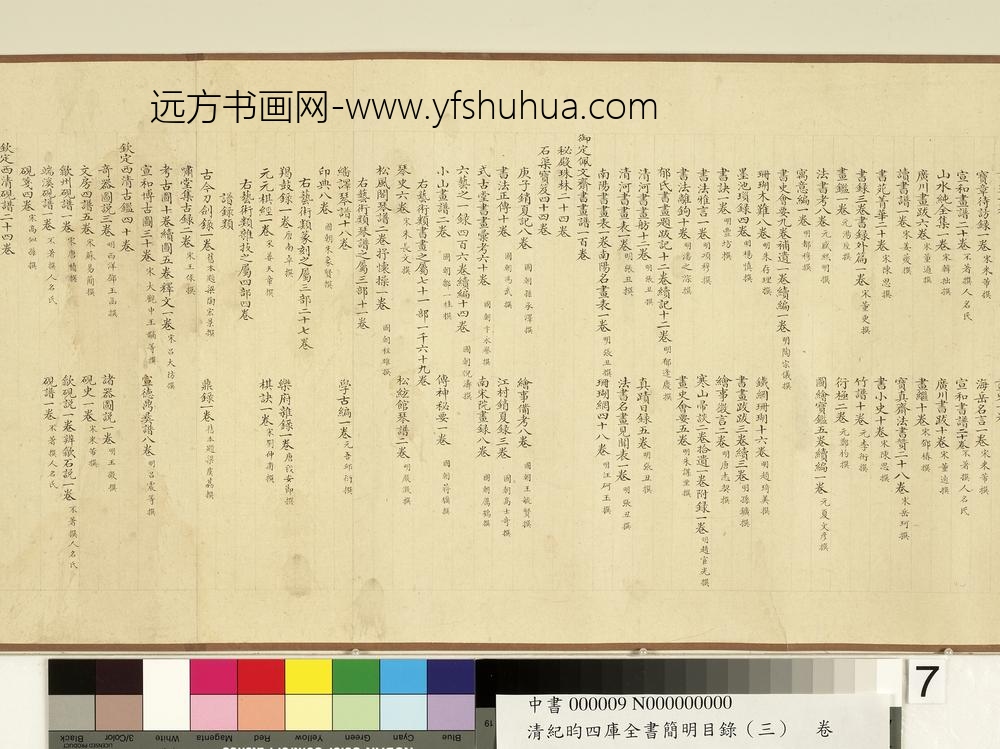 远方书画网-www.yfshuhua.com
寶章待訪錄一卷 宋米芾撰
海岳名言一卷 宋米芾撰
宣和畫譜二十卷 不著撰人名氏
宣和書譜二十卷 不著撰人名氏
山水純全集一卷 宋韓拙撰
廣川書跋十卷 宋董逌撰
廣川畫跋六卷 宋董逌撰
畫繼十卷 宋鄧椿撰
續書譜一卷 宋姜夔撰
寶真齋法書贊二十八卷 宋岳珂撰
書苑菁華二十卷 宋陳思撰
書小史十卷 宋陳思撰
書錄三卷書錄外篇一卷 宋董更撰
竹譜十卷 元李衎撰
畫鑑一卷 元湯垕撰
衍極二卷 元鄭杓撰
法書考八卷 元盛熙明撰
圖繪寶鑑五卷續編一卷 元夏文彥撰
寓意編一卷 明都穆撰
書史會要九卷補遺一卷續編一卷 明陶宗儀撰
珊瑚木難八卷 明朱存理撰
鐵網珊瑚十六卷 明趙琦美撰
墨池瑣錄四卷 明楊慎撰
書畫跋跋三卷續三卷 明孫鑛撰
書訣一卷 明豐坊撰
繪事微言二卷 明唐志契撰
書法雅言一卷 明項穆撰
寒山帚談二卷拾遺一卷附錄一卷 明趙宧光撰
書法離鉤十卷 明潘之淙撰
畫史會要五卷 明朱謀垔撰
郁氏書畫題跋記十二卷續記十二卷 明郁逢慶撰
清河書畫舫十二卷 明張丑撰
真蹟日錄五卷 明張丑撰
清河書畫表一卷 明張丑撰
法書名畫見聞表一卷 明張丑撰
南陽書畫表一卷南陽名畫表一卷 明張丑撰
珊瑚網四十八卷 明汪砢玉撰
御定佩文齋書畫譜一百卷
秘殿珠林二十四卷
石渠寶笈四十四卷
庚子銷夏記八卷 國朝孫承澤撰
繪事備考八卷 國朝王毓賢撰
書法正傳十卷 國朝馮武撰
江村銷夏錄三卷 國朝高士奇撰
式古堂書畫彙考六十卷 國朝卞永譽撰
南宋院畫錄八卷 國朝厲鶚撰
六藝之一錄四百六卷續編十四卷 國朝倪濤撰
小山畫譜二卷 國朝鄒一桂撰
傳神秘要一卷 國朝蔣驥撰
右藝術類書畫之屬七十一部一千六十九卷
琴史六卷 宋朱長文撰
松絃館琴譜二卷 明嚴澂撰
松風閣琴譜二卷抒懷操一卷 國朝程雄撰
右藝術類琴譜之屬三部十一卷
繙譯琴譜十八卷
學古編一卷 元吾邱衍撰
印典八卷 國朝朱象賢撰
右藝術類篆刻之屬三部二十七卷
羯鼓錄一卷 唐南卓撰
樂府雜錄一卷 唐段安節撰
元元棋經一卷 宋晏天章撰
棋訣一卷 宋劉仲甫撰
右藝術類雜技之屬四部四卷
譜錄類
古今刀劍錄一卷 舊本題梁陶宏景撰
鼎錄一卷 舊本題梁虞荔撰
嘯堂集古錄二卷 宋王俅撰
考古圖十卷續圖五卷釋文一卷 宋呂大防撰
宣和博古圖三十卷 宋大觀中王黼等撰
宣德鼎彝譜八卷 明呂震等撰
欽定西清古鑑四十卷
奇器圖說三卷 明西洋鄧玉函撰
諸器圖說一卷 明王徵撰
文房四譜五卷 宋蘇易簡撰
硯史一卷 宋米芾撰
歙州硯譜一卷 宋唐積撰
歙硯說一卷辨歙石說一卷 不著撰人名氏
端溪硯譜一卷 不著撰人名氏
硯譜一卷 不著撰人名氏
硯箋四卷 宋高似孫撰
欽定西清硯譜二十四卷
7
中書 000009 N000000000
清紀昀四庫全書簡明目錄（三） 卷
Black
3/Color
White
Magenta
Red
Yellow
Green
Cyan
Blue
19